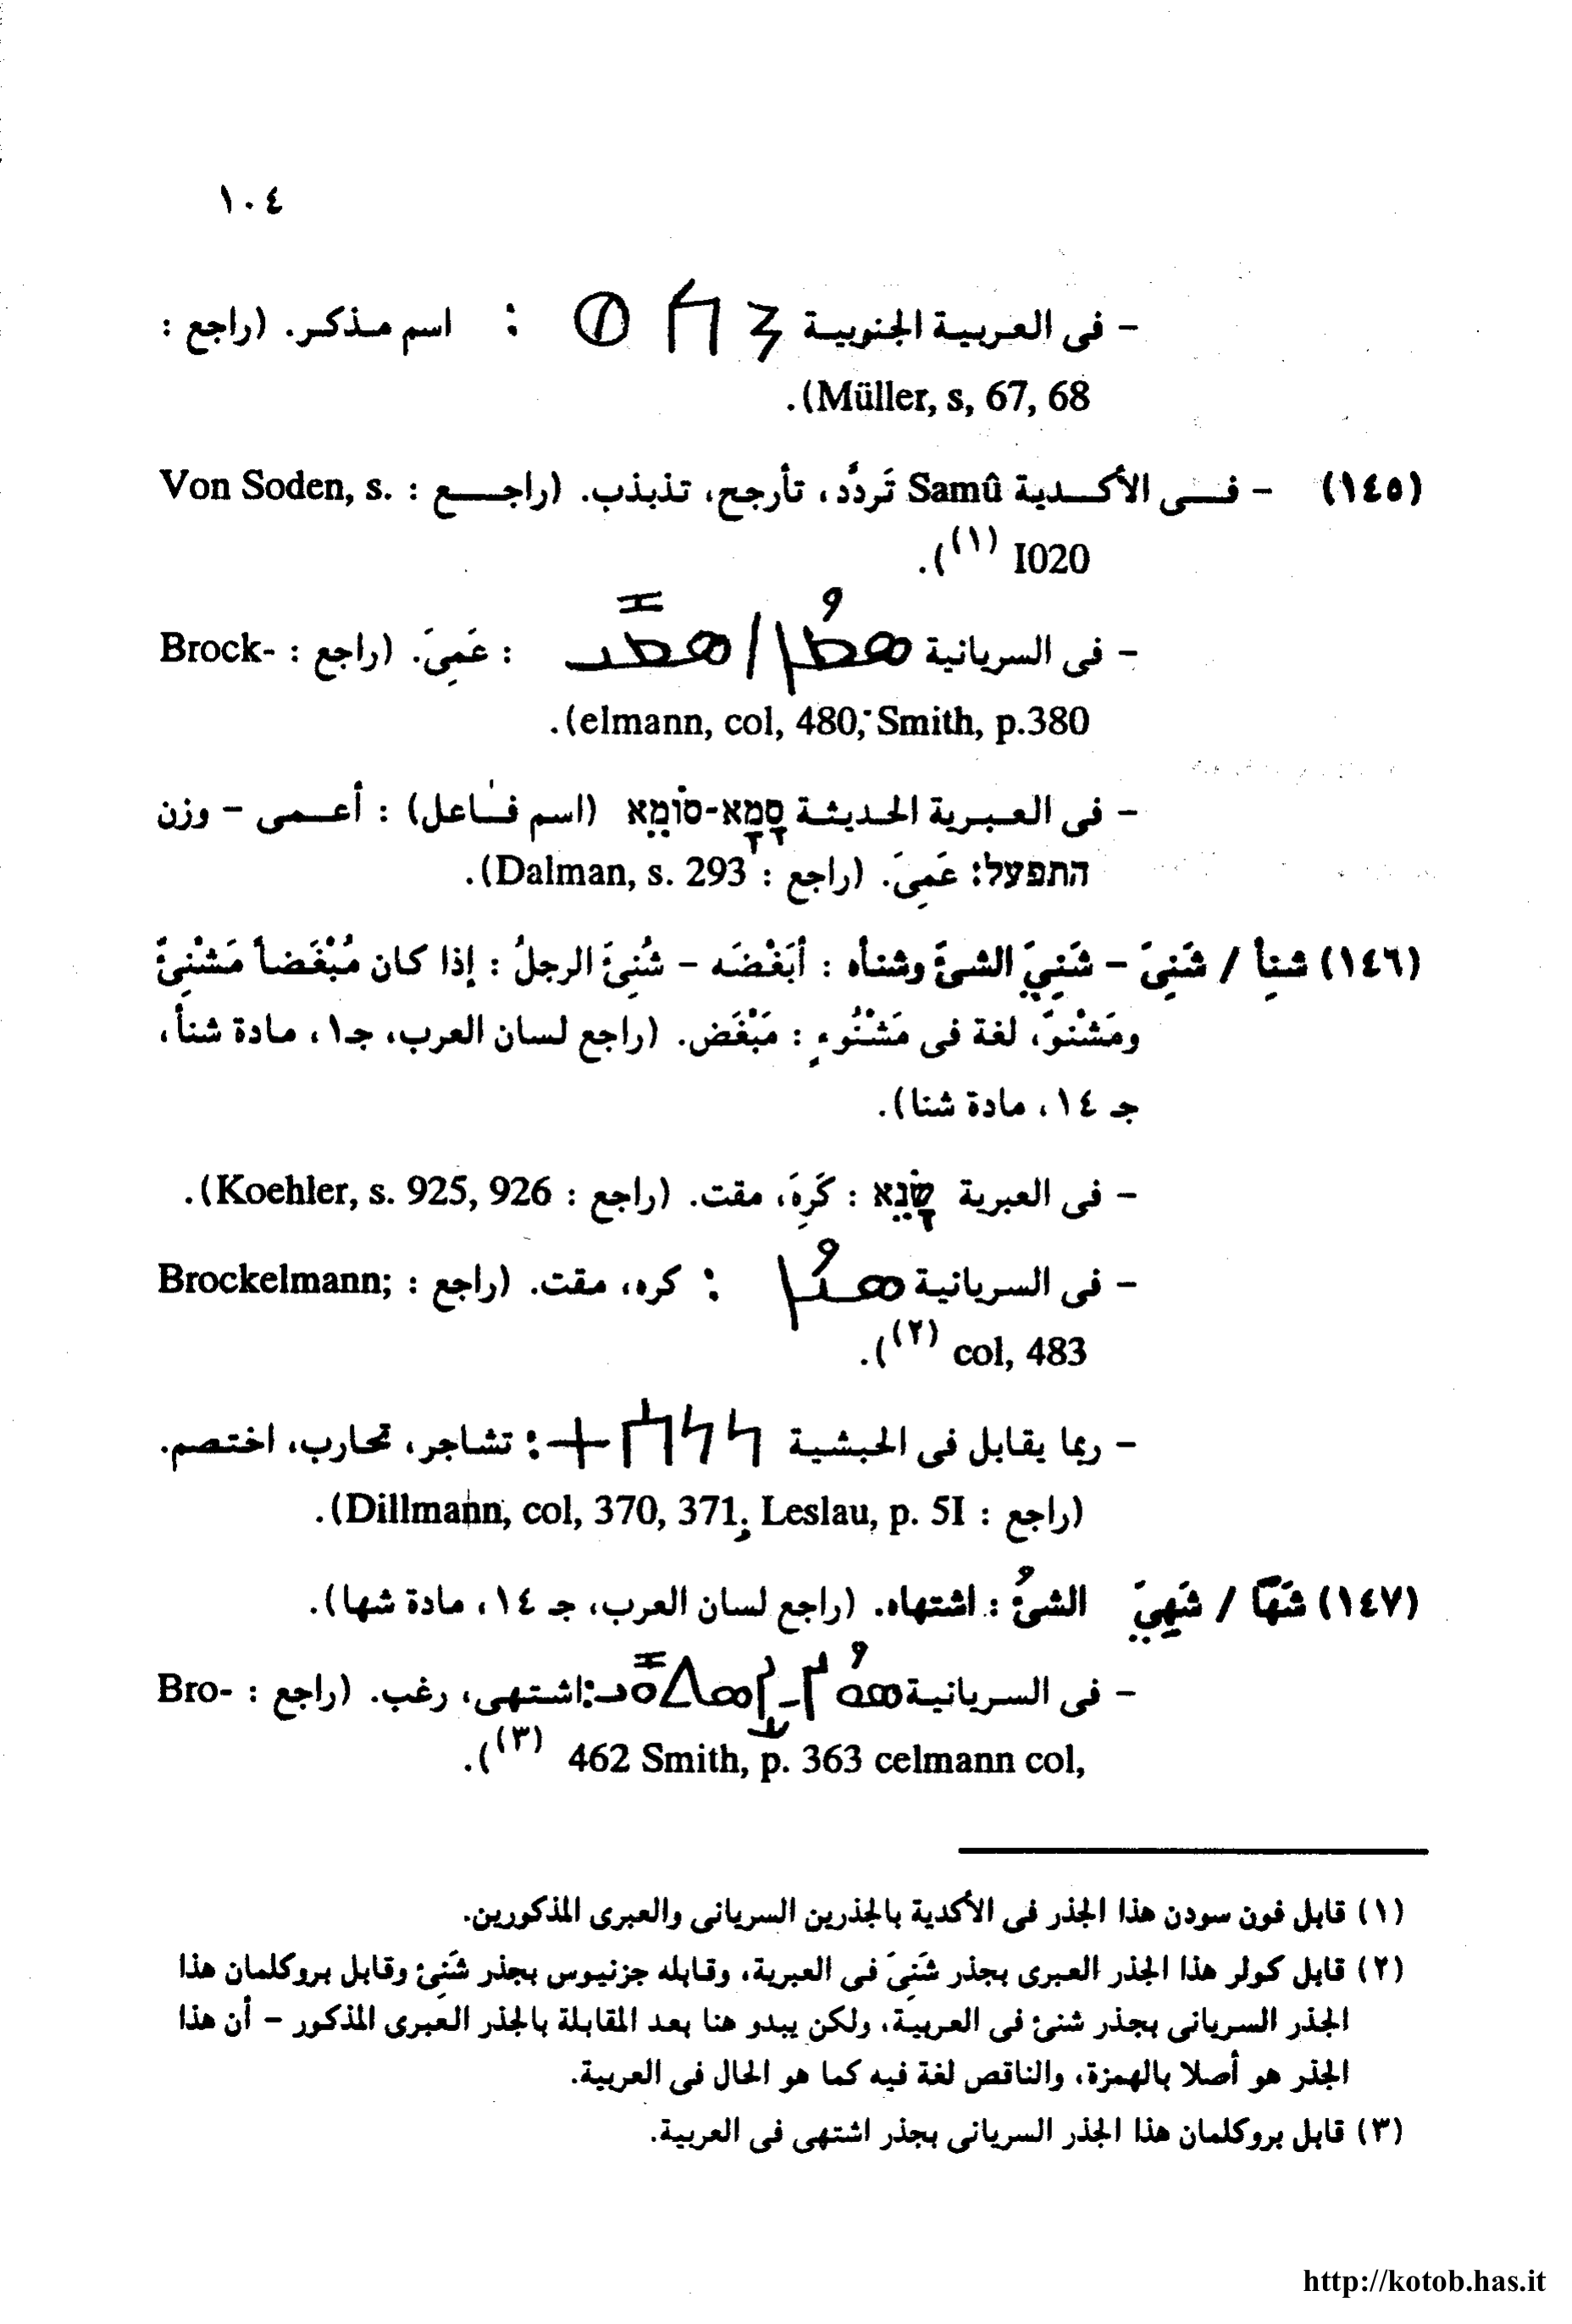 ١٠٤
- فى العربية الجنوبية : اسم مذكر. (راجع :
Müller, s, 67, 68).
(١٤٥) - فى الأكدية Samû تَردَّد، تأرجح، تذبذب. (راجع : Von Soden, s.
I020 (١)).
- فى السريانية : عَمِىَ. (راجع : Brock-
elmann, col, 480; Smith, p.380).
- فى العبرية الحديثة סָמָא-סוֹמֵא (اسم فاعل) : أعمى - وزن
התפעל: عَمِىَ. (راجع : Dalman, s. 293).
(١٤٦) شنِأ / شَنِىَ - شَنِيَ الشئَ وشنأه : أبَغْضَه - شُنِئَ الرجلُ : إذا كان مُبْغَضاً مَشْنِىٌّ
ومَشْنوّ، لغة فى مَشْنُوءٍ : مَبْغَض. (راجع لسان العرب، جـ١، مادة شنأ،
جـ ١٤، مادة شنا).
- فى العبرية שָׂנֵא : كَرِهَ، مقت. (راجع : Koehler, s. 925, 926).
- فى السريانية : كره، مقت. (راجع : Brockelmann;
col, 483 (٢)).
- ربما يقابل فى الحبشية : تشاجر، تحارب، اختصم.
(راجع : Dillmann, col, 370, 371; Leslau, p. 5I).
(١٤٧) شَهَّا / شَهِيَ الشئُ : اشتهاه. (راجع لسان العرب، جـ ١٤، مادة شها).
- فى السريانية :اشتهى، رغب. (راجع : Bro-
462 Smith, p. 363 celmann col, (٣)).
(١) قابل فون سودن هذا الجذر فى الأكدية بالجذرين السريانى والعبرى المذكورين.
(٢) قابل كولر هذا الجذر العبرى بجذر شَنِىَ فى العبرية، وقابله جزنيوس بجذر شَنِئ وقابل بروكلمان هذا
الجذر السريانى بجذر شنئ فى العربية، ولكن يبدو هنا بعد المقابلة بالجذر العبرى المذكور - أن هذا
الجذر هو أصلا بالهمزة، والناقص لغة فيه كما هو الحال فى العربية.
(٣) قابل بروكلمان هذا الجذر السريانى بجذر اشتهى فى العربية.
http://kotob.has.it